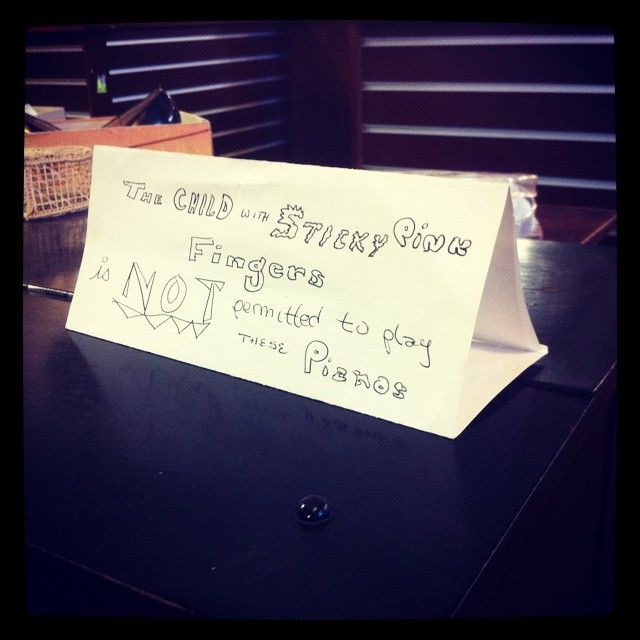 THE CHILD WITH STICKY PINK
Fingers
is NOT permitted to play
THESE Pianos